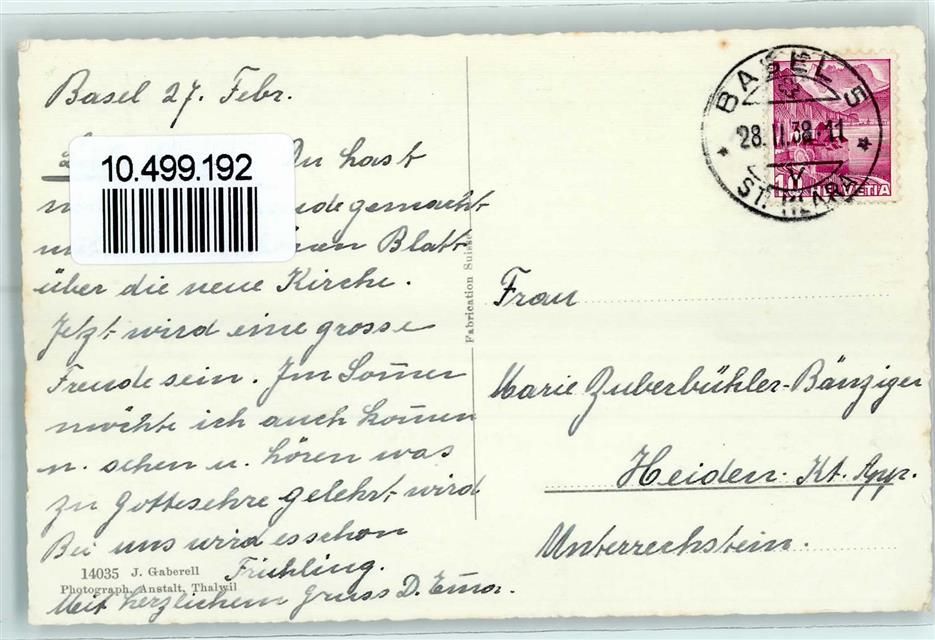 Basel 27. Febr.
10.499.192
Du hast
gemacht
Blatt
über die neue Kirche.
Jetzt wird eine grosse
Freude sein. Im Som̅er
möchte ich auch kom̅en
u. sehen u. hören was
zu Gottesehre gelehrt wird
Bei uns wird es schon
Frühling.
Mit herzlichem Gruss D. Em̅a.
14035 J. Gaberell
Photograph. Anstalt, Thalwil
Fabrication Suisse
BASEL 5
28.II.38-11
ST. CLARA
10 HELVETIA
Frau
Marie Zuberbühler-Bänziger
Heiden. Kt. App.
Unterrechstein.